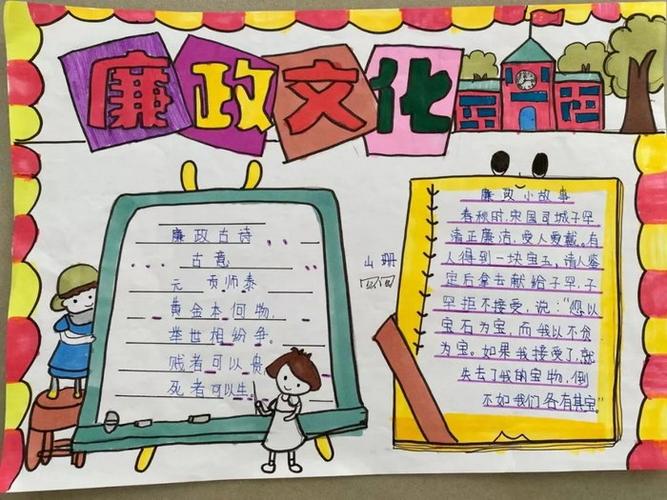 廉政文化
廉政古诗
古意
元 贡师泰
黄金本何物，
举世相纷争。
贱者可以贵，
死者可以生。
廉政小故事
春秋时，宋国司城子罕
清正廉洁，受人爱戴。有
人得到一块宝玉，请人鉴
定后拿去献给子罕，子
罕拒不接受，说：“您以
宝石为宝，而我以不贪
为宝。如果我接受了，就
失去了我的宝物，倒
不如我们各有其宝”